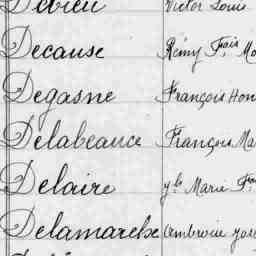 Victor Louis
Decause Rémy Frçis
Degasne François Hon
Delabeauce François Ma
Delaire Marie
Delamarche Ambroise